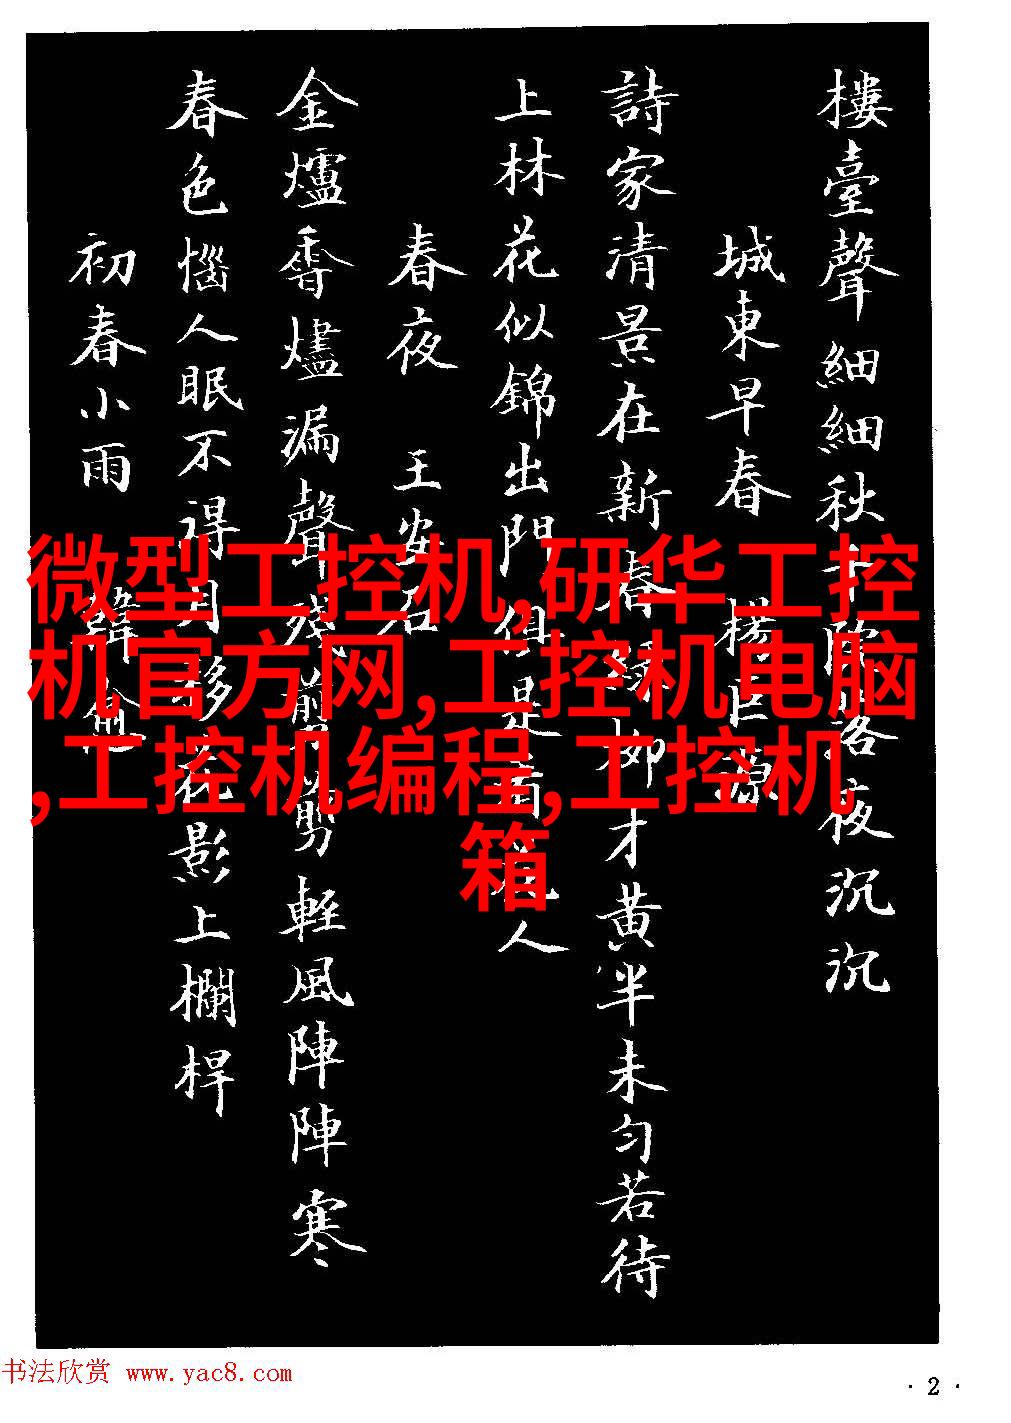 樓臺聲細細秋千院落夜沉沉
城東早春 楊巨源
詩家清景在新春綠柳才黃半未勻若待
上林花似錦出門俱是看花人
春夜 王安石
金爐香燼漏聲殘剪剪輕風陣陣寒
春色惱人眠不得月移花影上欄桿
初春小雨 韓愈
微型工控机,研华工控
机官方网,工控机电脑
,工控机编程,工控机
箱
书法欣赏 www.yac8.com
· 2 ·